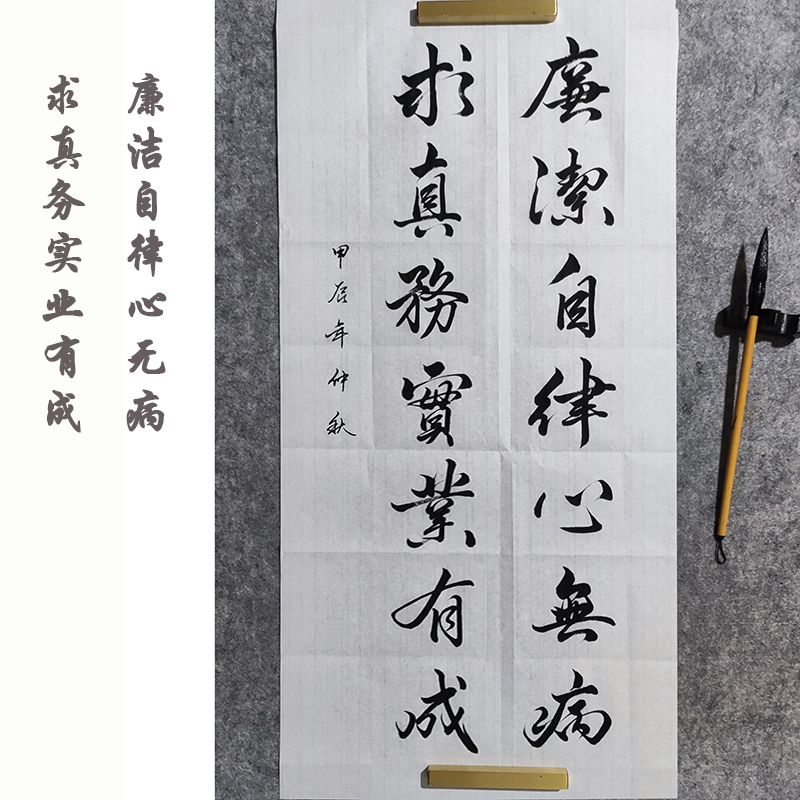 廉洁自律心无病
求真务实业有成
廉潔自律心無病
求真務實業有成
甲辰年仲秋